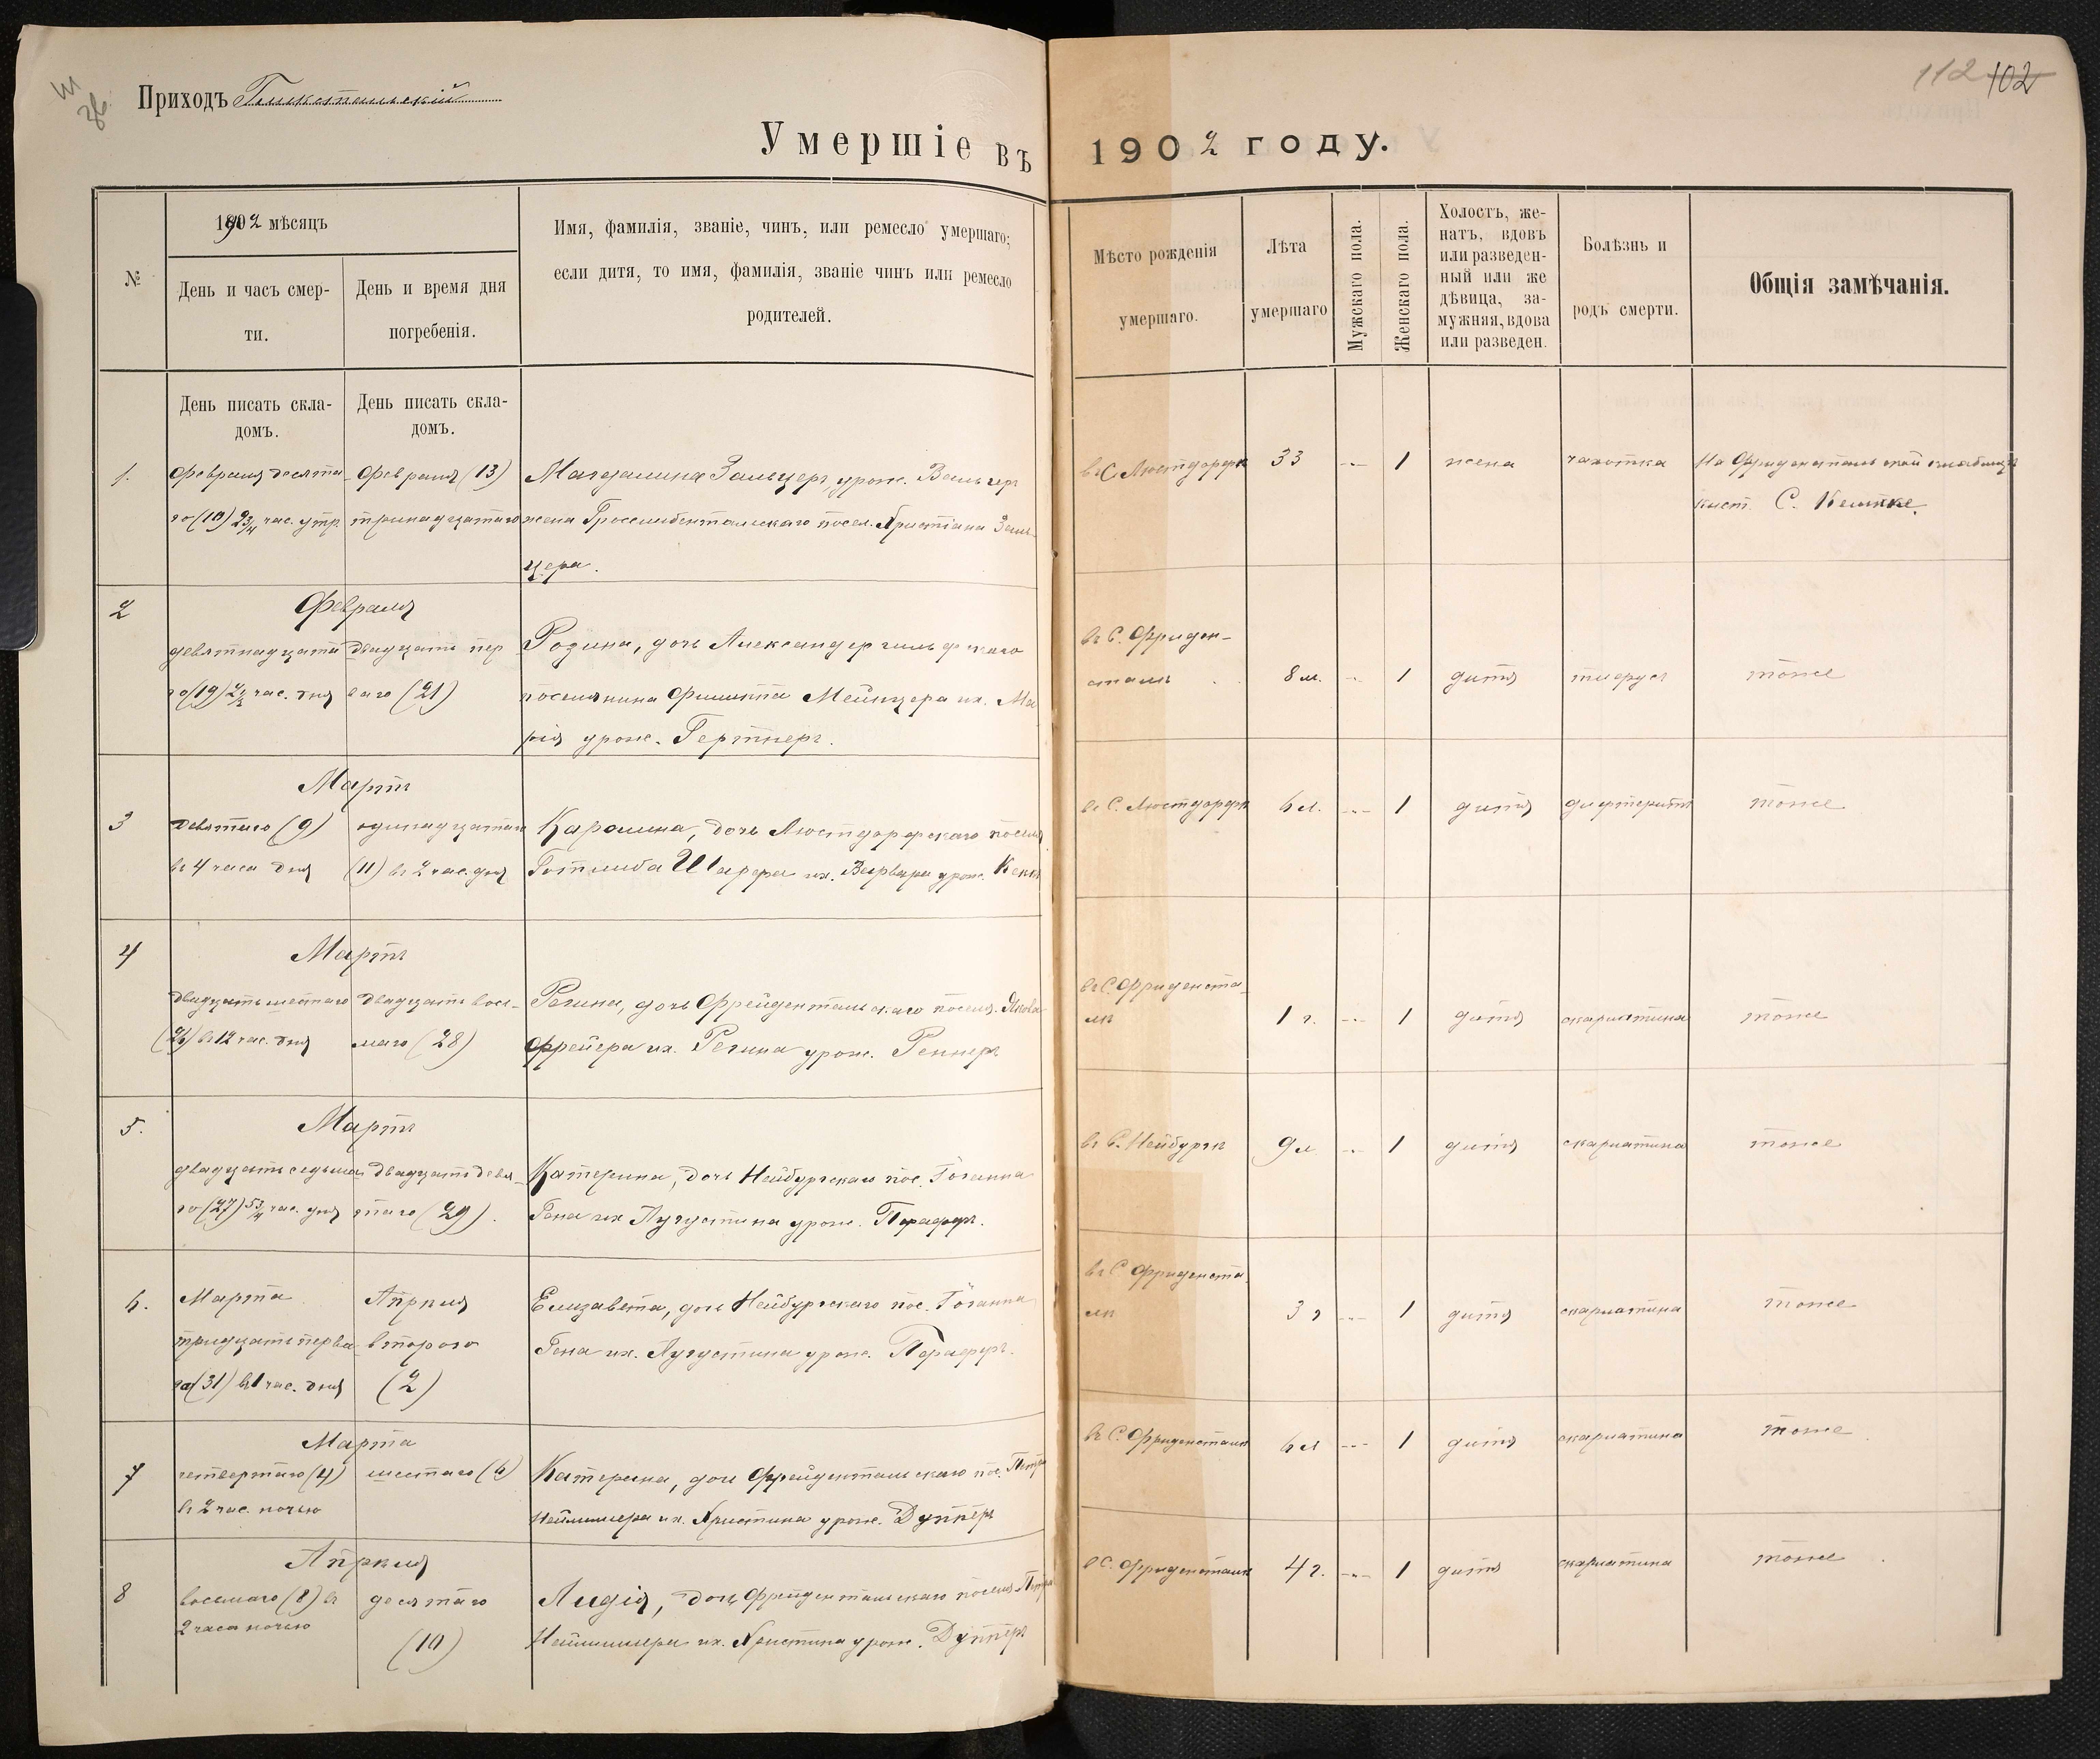 Приходъ Гликстальскій
112 102
Умершіе въ 1902 году.
№
1902 мѣсяцъ
День и часъ смер-
ти.
День и время дня
погребенія.
Имя, фамилія, званіе, чинъ, или ремесло умершаго;
если дитя, то имя, фамилія, званіе чинъ или ремесло
родителей.
Мѣсто рожденія
умершаго.
Лѣта
умершаго
Мужскаго пола.
Женскаго пола.
Холостъ, же-
натъ, вдовъ
или разведен-
ный или же
дѣвица, за-
мужняя, вдова
или разведен.
Болѣзнь и
родъ смерти.
Общія замѣчанія.
День писать скла-
домъ.
День писать скла-
домъ.
1.
Февраля десята
го (10) 9 3/4 час. утр
Февраля (13)
тринадцатаго
Магдалина Зальцеръ, урож.
жена Гросслибентальскаго посел. Христіана Заль-
цера.
въ С. Люстдорфѣ
33
1
жена
чахотка
На Фриденстальской кладбищѣ
кист. С.
2
Февраля
девятнадцата
го (19) 2 1/2 час. дня
двадцать пер
ваго (21)
Розина, дочь Александергильфскаго
поселянина Филиппа Мейнцера их. Ма
рія урож. Гертнеръ.
въ С. Фриден-
сталь
8 м.
1
дитя
тоже
3
Мартъ
девятаго (9)
въ 4 часа дня
одинадцатаго
(11) въ 2 час. дня
Каролина, дочь Люстдорфскаго посел
Готлиба Шафера их. Варвара урож.
въ С. Люстдорфѣ
6 л.
1
дитя
дифтеритъ
тоже
4
Мартъ
двадцать шестаго
(26) въ 12 час. дня
двадцать вось-
маго (28)
Регина, дочь Фрейдентальскаго посел. Якова
Фрейера их. Регина урож. Реннеръ
въ С. Фриденста-
лѣ
1 г.
1
дитя
скарлатина
тоже
5.
Мартъ
двадцать седьма
го (27) 5 3/4 час. дня
двадцать девя-
таго (29).
Катерина, дочь Нейбургскаго пос. Іоганна
Гена их Августина урож.
въ С. Нейбургѣ
9 м
1
дитя
скарлатина
тоже
6.
Марта
тридцать перва
го (31) въ 1 час. дня
Апрѣля
втораго
(2)
Елизавета, дочь Нейбургскаго пос. Іоганна
Гена их. Августина урож.
въ С. Фриденста
лѣ
3 г
1
дитя
скарлатина
тоже
7
Марта
четвертаго (4)
въ 2 час. ночью
шестаго (6)
Катерина, дочь Фрейдентальскаго пос. Петра
Неймиллера их. Христина урож. Дуппер
въ С. Фриденсталѣ
6 л
1
дитя
скарлатина
тоже
8
Апрѣля
восьмаго (8) въ
2 часа ночью
десятаго
(10)
Лидія, дочь Фрейдентальскаго посел Петра
Неймиллера их. Христина урож. Дуппер
въ С. Фриденсталѣ
4 г.
1
дитя
скарлатина
тоже